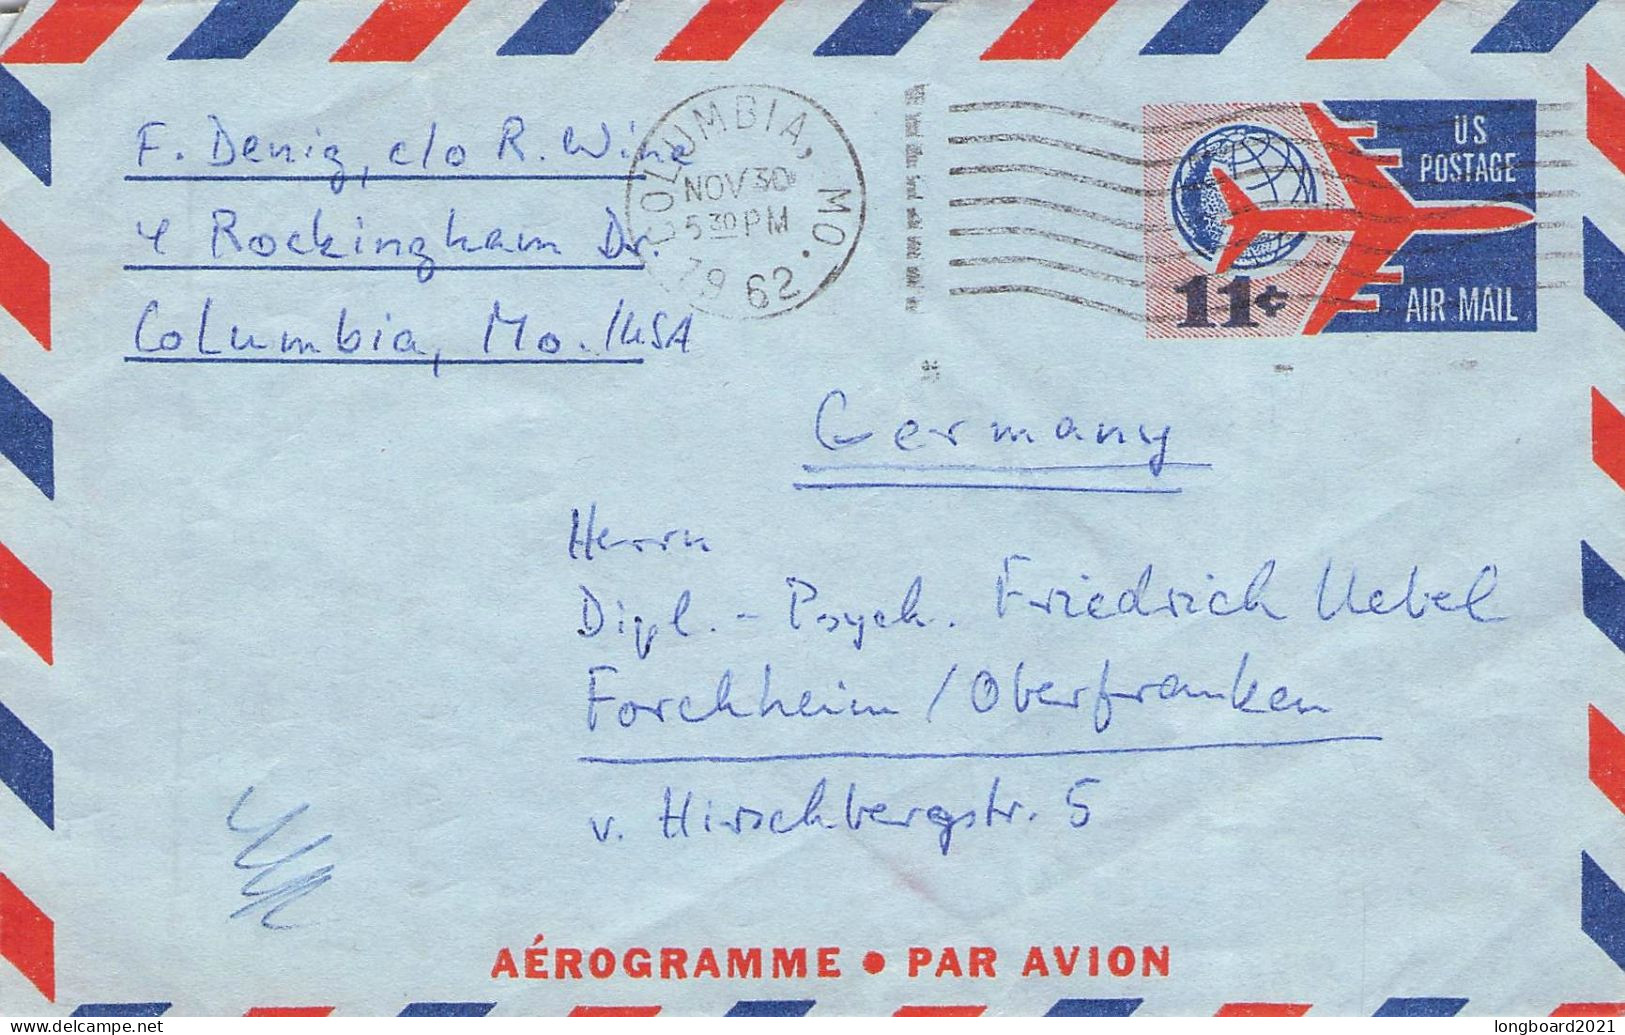 F. Denig, c/o R. Wine
4 Rockingham Dr.
Columbia, Mo./USA
COLUMBIA, MO.
NOV 30
5 30 PM
1962
US
POSTAGE
11¢
AIR MAIL
Germany
Herrn
Dipl.-Psych. Friedrich Uebel
Forchheim/Oberfranken
v. Hirschbergstr. 5
AÉROGRAMME • PAR AVION
www.delcampe.net
longboard2021